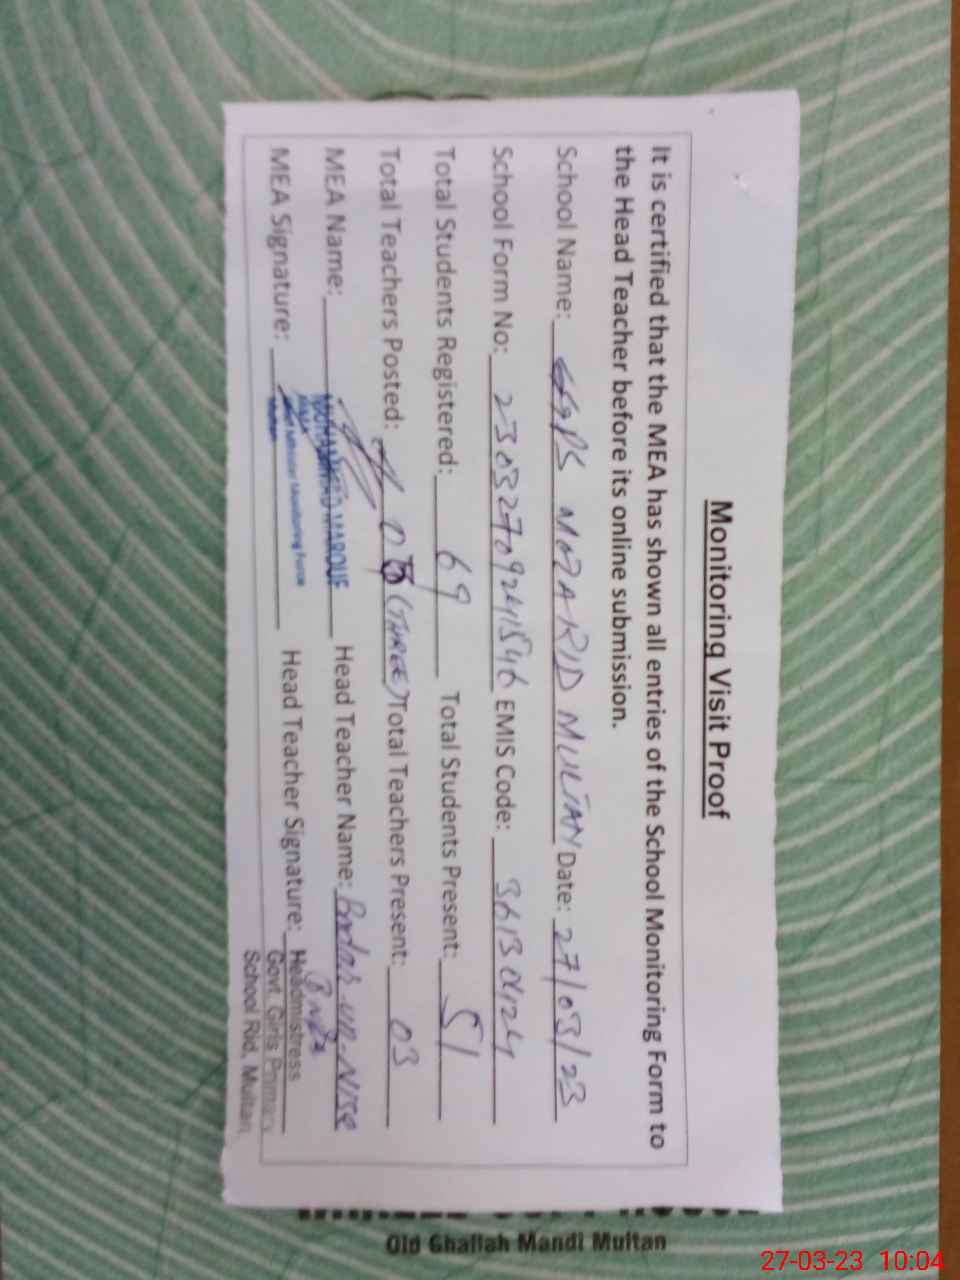 Monitoring Visit Proof
It is certified that the MEA has shown all entries of the School Monitoring Form to
the Head Teacher before its online submission.
School Name: GGPS MOZA RID MULTAN Date: 27/03/23
School Form No: EMIS Code:
Total Students Registered: 69 Total Students Present: 51
Total Teachers Posted: (THREE) Total Teachers Present: 03
MEA Name: MAROUF Head Teacher Name: Badar-un-Nisa
MEA Signature: Monitoring Force Head Teacher Signature: Headmistress
Govt. Girls Primary
School Rid, Multan
Old Ghallah Mandi Multan
27-03-23 10:04